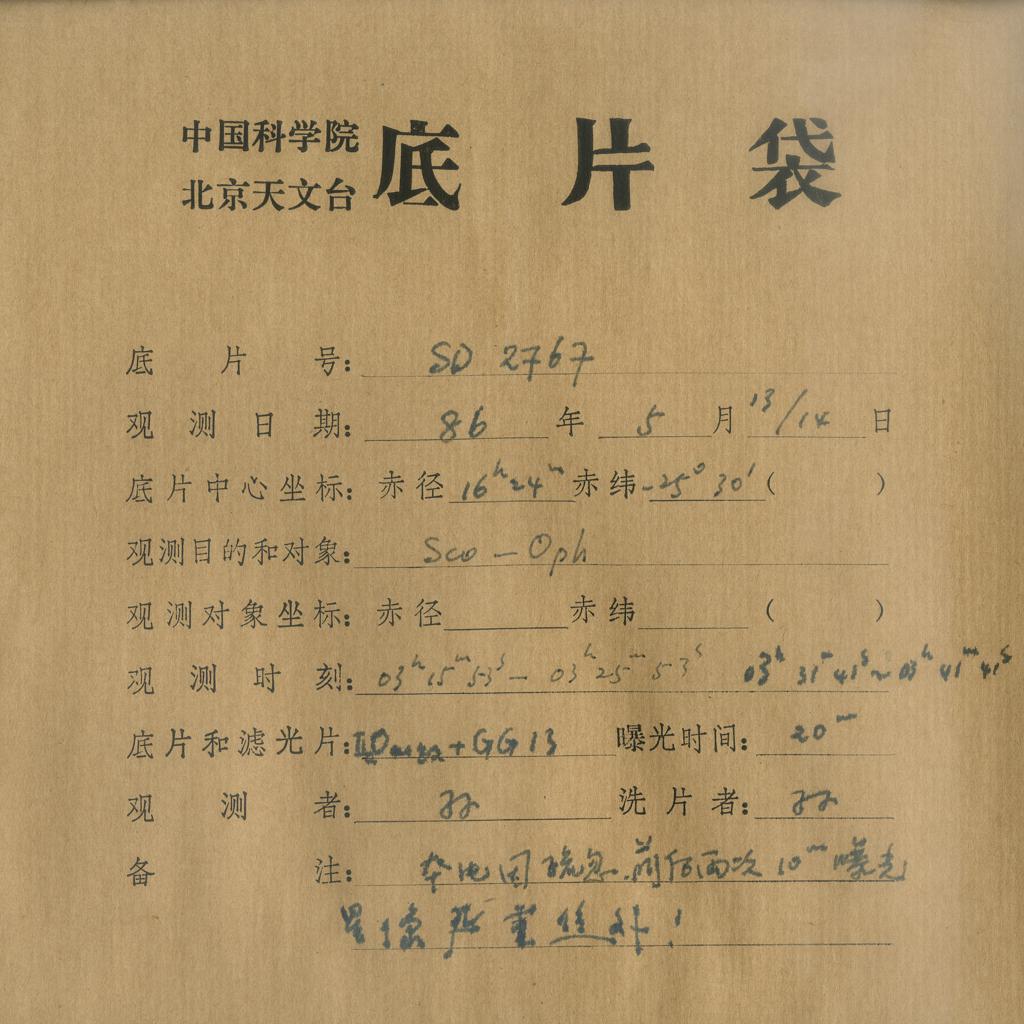 中国科学院
北京天文台
底片袋
底片号: SD 2767
观测日期: 86 年 5 月 13/14 日
底片中心坐标: 赤径 16ʰ24ᵐ 赤纬 -25°30′ ( )
观测目的和对象: Sco — Oph
观测对象坐标: 赤径 赤纬 ( )
观测时刻: 03ʰ15ᵐ53ˢ — 03ʰ25ᵐ53ˢ 03ʰ31ᵐ41ˢ~03ʰ41ᵐ41ˢ
底片和滤光片: + GG13 曝光时间: 20ᵐ
观测者: 洗片者:
备注: 因 前后两次 10ᵐ 曝光
星像严重 !